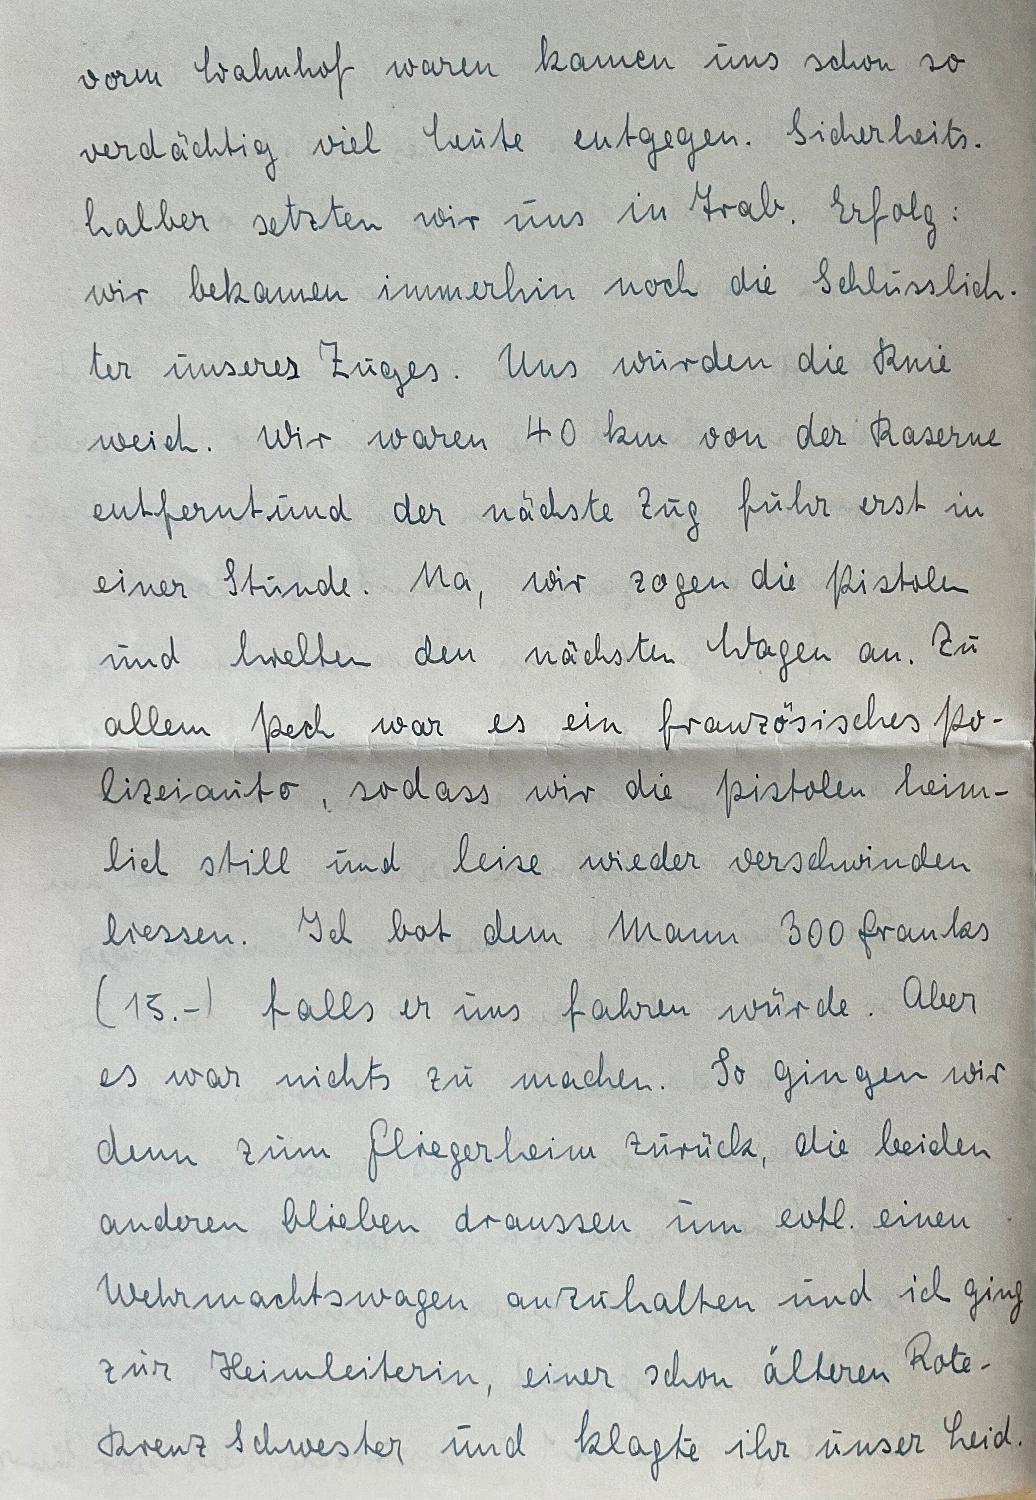 vorm Bahnhof waren kamen uns schon so
verdächtig viel Leute entgegen. Sicherheits-
halber setzten wir uns in Trab. Erfolg:
wir bekamen immerhin noch die Schlusslich-
ter unseres Zuges. Uns wurden die Knie
weich. Wir waren 40 km von der Kaserne
entfernt und der nächste Zug fuhr erst in
einer Stunde. Na, wir zogen die Pistolen
und hielten den nächsten Wagen an. Zu
allem Pech war es ein französisches Po-
lizeiauto, sodass wir die Pistolen heim-
lich still und leise wieder verschwinden
liessen. Ich bot dem Mann 300 Franks
(15.-) falls er uns fahren würde. Aber
es war nichts zu machen. So gingen wir
denn zum Fliegerheim zurück, die beiden
anderen blieben draussen um evtl. einen
Wehrmachtswagen anzuhalten und ich ging
zur Heimleiterin, einer schon älteren Rote-
Kreuz Schwester und klagte ihr unser Leid.